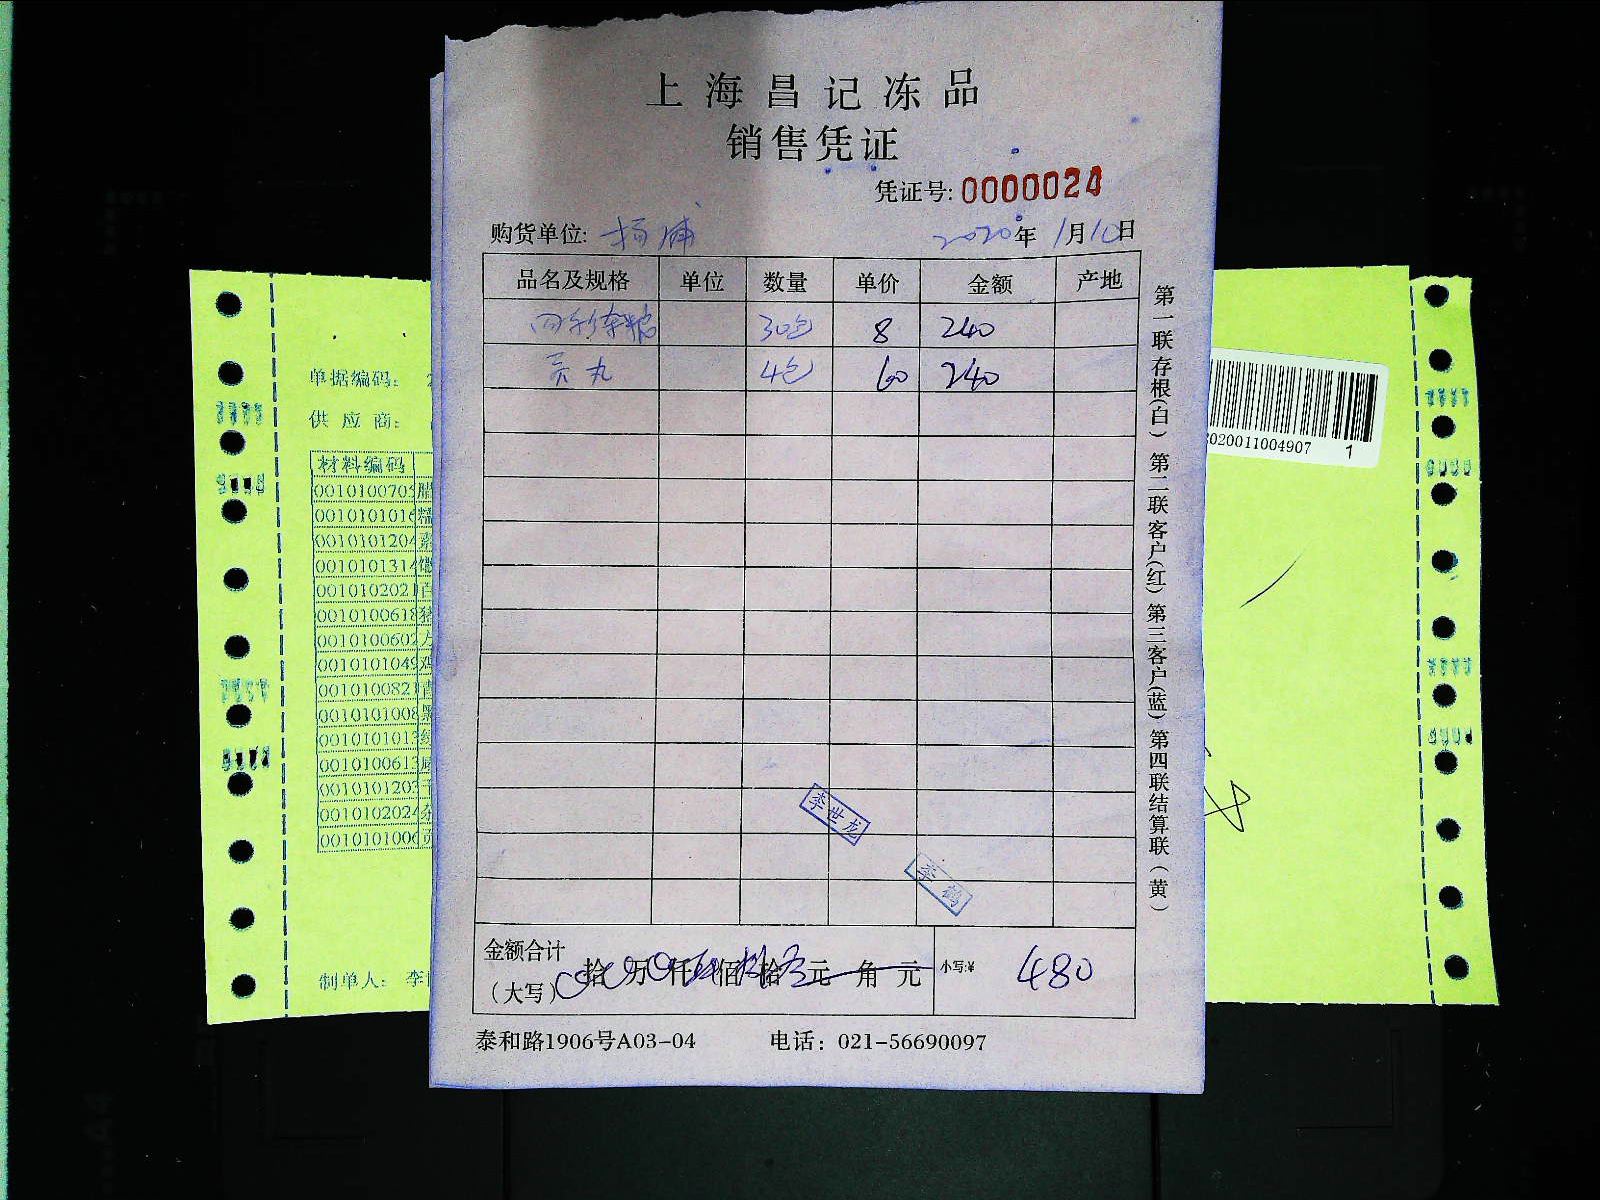 上海昌记冻品
销售凭证
凭证号: 0000024
购货单位: 杨浦 2020年1月10日
品名及规格 单位 数量 单价 金额 产地
30包 8 240
贡丸 4包 60 240
李世龙
李鹤
金额合计
(大写) 拾 万 仟 佰 拾 元 角 元 小写:¥ 480
泰和路1906号A03-04 电话：021-56690097
第一联存根(白) 第二联客户(红) 第三客户(蓝) 第四联结算联(黄)
单据编码：
供应商：
材料编码
0010100705
0010101016
0010101204
0010101314
0010102021
0010100618
0010100602
0010101049
0010100821
0010101008
0010101013
0010100613
0010101203
0010102024
0010101006
制单人： 李
020011004907 1